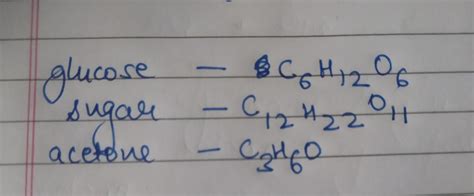 glucose - C₆H₁₂O₆
sugar - C₁₂H₂₂O₁₁
acetone - C₃H₆O